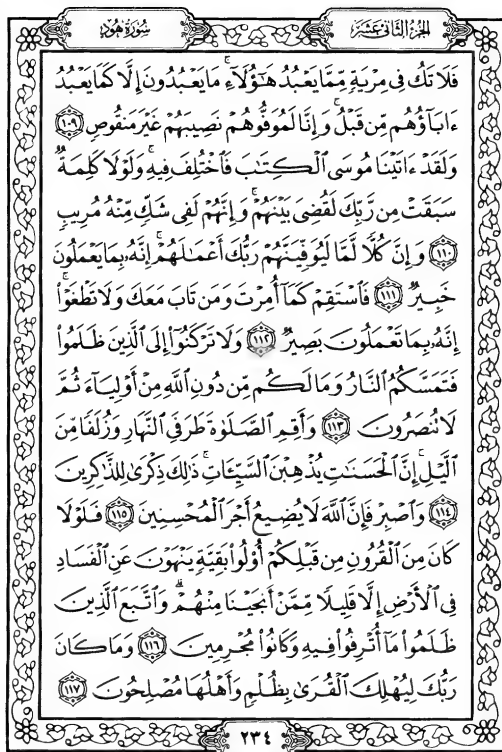 الجزء الثاني عشر
سورة هود
فَلَا تَكُ فِى مِرْيَةٍ مِّمَّا يَعْبُدُ هَـٰٓؤُلَآءِ ۚ مَا يَعْبُدُونَ إِلَّا كَمَا يَعْبُدُ
ءَابَآؤُهُم مِّن قَبْلُ ۚ وَإِنَّا لَمُوَفُّوهُمْ نَصِيبَهُمْ غَيْرَ مَنقُوصٍ ١٠٩
وَلَقَدْ ءَاتَيْنَا مُوسَى ٱلْكِتَـٰبَ فَٱخْتُلِفَ فِيهِ ۚ وَلَوْلَا كَلِمَةٌ
سَبَقَتْ مِن رَّبِّكَ لَقُضِىَ بَيْنَهُمْ ۚ وَإِنَّهُمْ لَفِى شَكٍّ مِّنْهُ مُرِيبٍ
١١٠ وَإِنَّ كُلًّا لَّمَّا لَيُوَفِّيَنَّهُمْ رَبُّكَ أَعْمَـٰلَهُمْ ۚ إِنَّهُۥ بِمَا يَعْمَلُونَ
خَبِيرٌ ١١١ فَٱسْتَقِمْ كَمَآ أُمِرْتَ وَمَن تَابَ مَعَكَ وَلَا تَطْغَوْا۟ ۚ
إِنَّهُۥ بِمَا تَعْمَلُونَ بَصِيرٌ ١١٢ وَلَا تَرْكَنُوٓا۟ إِلَى ٱلَّذِينَ ظَلَمُوا۟
فَتَمَسَّكُمُ ٱلنَّارُ وَمَا لَكُم مِّن دُونِ ٱللَّهِ مِنْ أَوْلِيَآءَ ثُمَّ
لَا تُنصَرُونَ ١١٣ وَأَقِمِ ٱلصَّلَوٰةَ طَرَفَىِ ٱلنَّهَارِ وَزُلَفًا مِّنَ
ٱلَّيْلِ ۚ إِنَّ ٱلْحَسَنَـٰتِ يُذْهِبْنَ ٱلسَّيِّـَٔاتِ ۚ ذَٰلِكَ ذِكْرَىٰ لِلذَّٰكِرِينَ
١١٤ وَٱصْبِرْ فَإِنَّ ٱللَّهَ لَا يُضِيعُ أَجْرَ ٱلْمُحْسِنِينَ ١١٥ فَلَوْلَا
كَانَ مِنَ ٱلْقُرُونِ مِن قَبْلِكُمْ أُو۟لُوا۟ بَقِيَّةٍ يَنْهَوْنَ عَنِ ٱلْفَسَادِ
فِى ٱلْأَرْضِ إِلَّا قَلِيلًا مِّمَّنْ أَنجَيْنَا مِنْهُمْ ۗ وَٱتَّبَعَ ٱلَّذِينَ
ظَلَمُوا۟ مَآ أُتْرِفُوا۟ فِيهِ وَكَانُوا۟ مُجْرِمِينَ ١١٦ وَمَا كَانَ
رَبُّكَ لِيُهْلِكَ ٱلْقُرَىٰ بِظُلْمٍ وَأَهْلُهَا مُصْلِحُونَ ١١٧
٢٣٤